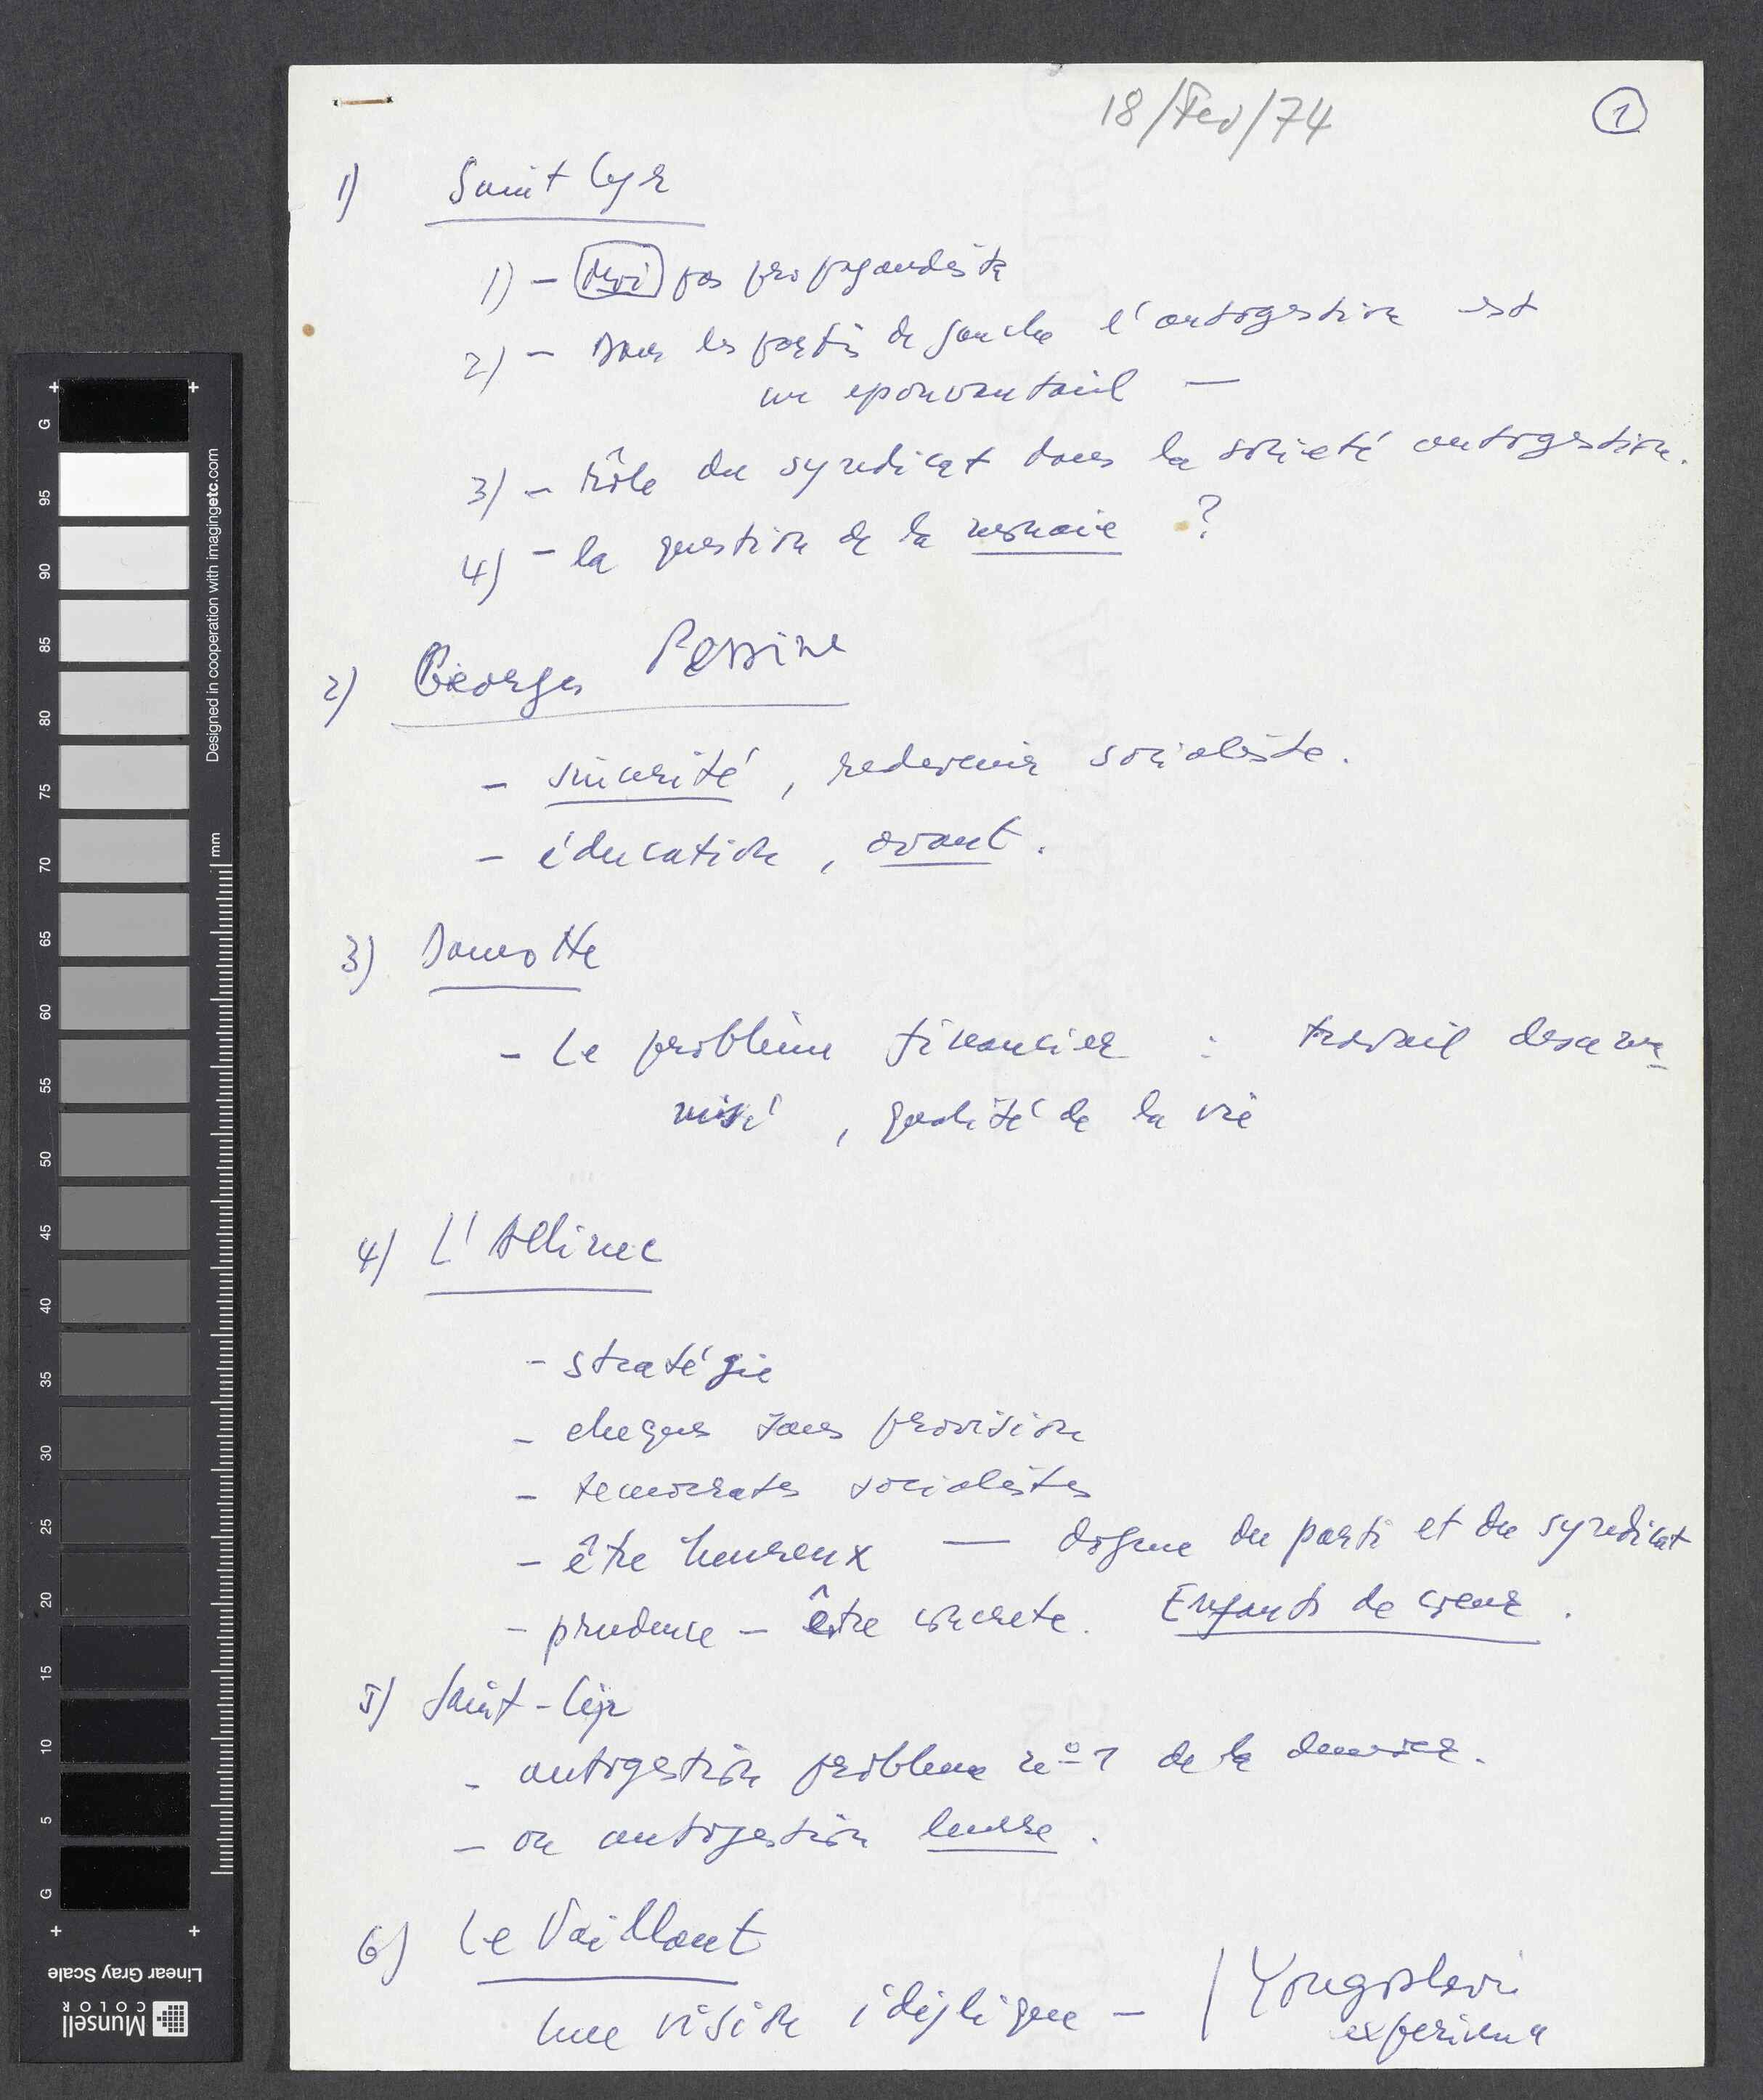 18/Fev/74
1
1) Saint Cyr
1) - moi pas propagandiste
2) - Dans les partis de gauche l'autogestion est
un epouvantail -
3) - rôle du syndicat dans la societé autogestion.
4) - la question de la monnaie ?
2) Georges Pessine
- sincerité, redevenir socialiste.
- éducation, avant.
3) Damotte
- Le problème financier : travail
, qualité de la vie
4) L'Allinec
- stratégie
- cheques sans provision
- tecnocrates socialistes
- être heureux — dogme du parti et du syndicat
- prudence - être concrete. Enfants de cœur.
5) Saint-Cyr
- autogestion probleme nº 1 de la
- ou autogestion leurre.
6) Le Vaillant
Une vision idyllique - / Yougoslavi
experience
Designed in cooperation with imagingetc.com
mm
G 95 90 85 80 75 70 65 60 55 50 45 40 35 30 25 20 15 10 5 G
Munsell
COLOR
Linear Gray Scale